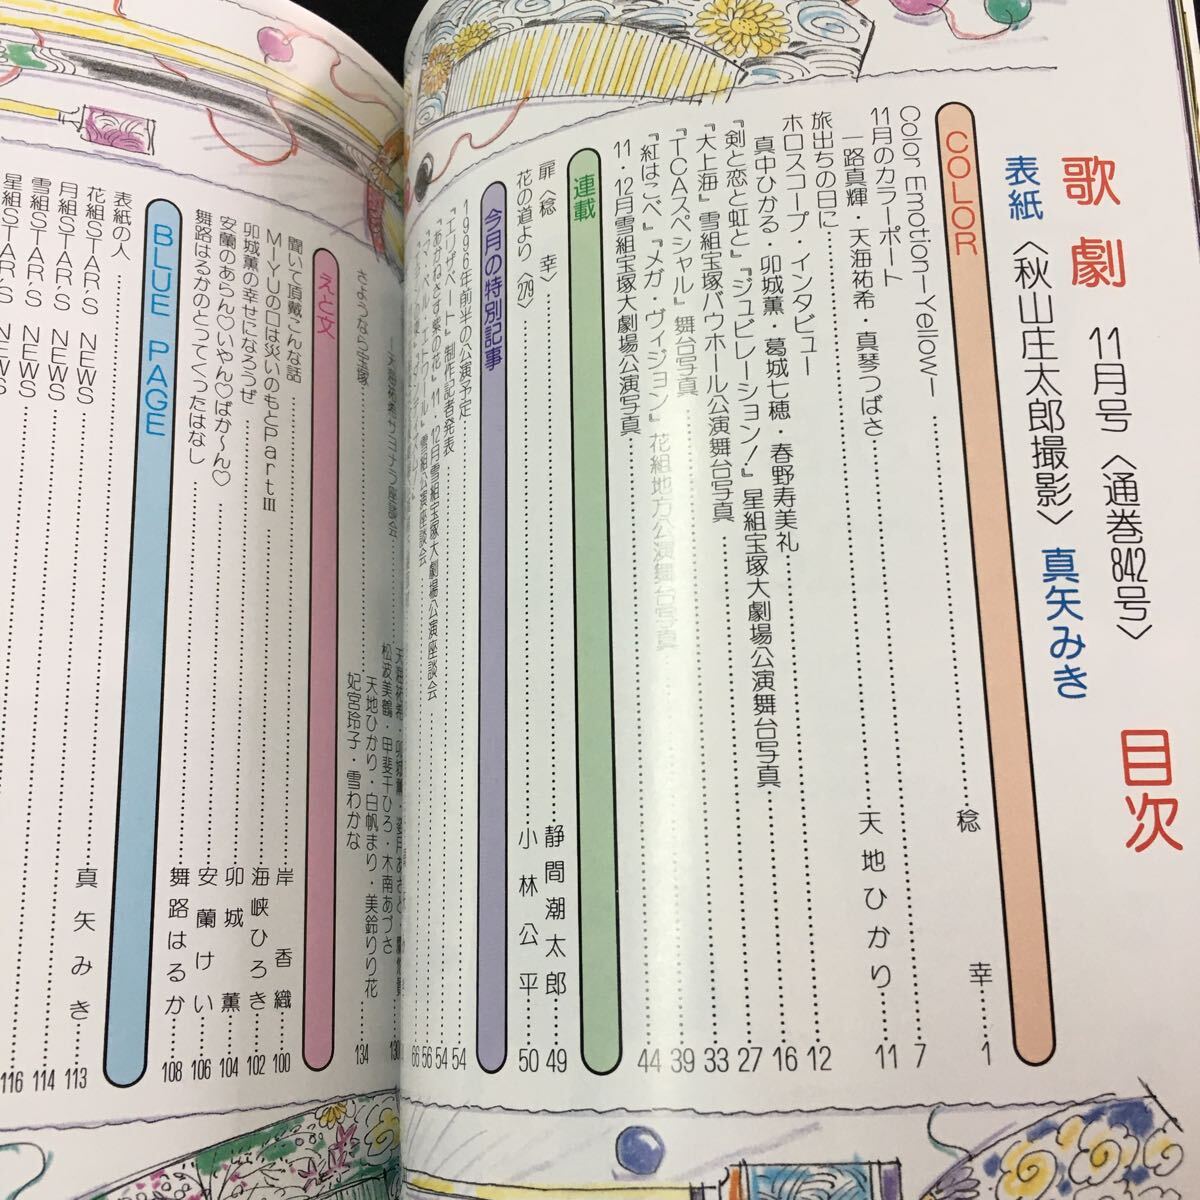 歌劇 11月号〈通巻842号〉 目次
表紙〈秋山庄太郎撮影〉真矢みき
COLOR
Color Emotion—Yellow— 稔 幸 1
11月のカラーポート 7
一路真輝・天海祐希・真琴つばさ
旅出ちの日に 天地ひかり 11
ホロスコープ・インタビュー 12
真中ひかる・卯城薫・葛城七穂・春野寿美礼 16
『剣と恋と虹と』『ジュビレーション!』星組宝塚大劇場公演舞台写真 27
『大上海』雪組宝塚バウホール公演舞台写真 33
『TCAスペシャル』舞台写真 39
『紅はこべ』『メガ・ヴィジョン』花組地方公演舞台写真
11・12月雪組宝塚大劇場公演写真 44
連載
扉〈稔 幸〉 静間潮太郎 49
花の道より〈279〉 小林公平 50
今月の特別記事
1996年前半の公演予定 54
『エリザベート』制作記者発表 54
『あかねさす紫の花』11・12月雪組宝塚大劇場公演座談会 56
雪組公演座談会 66
—天海祐希サヨナラ座談会 130
天海祐希・卯城薫・姿月あさと
松波美鶴・甲斐千ひろ・木南あづさ
さようなら宝塚 134
天地ひかり・白帆まり・美鈴りり花
妃宮玲子・雪わかな
えと文
聞いて頂戴こんな話 岸香織 100
MIYUの口は災いのもとPartⅢ 海峡ひろき 102
卯城薫の幸せになろうぜ 卯城薫 104
安蘭のあらん♡いやん♡ばか〜ん♡ 安蘭けい 106
舞路はるかのとってくったはなし 舞路はるか 108
BLUE PAGE
表紙の人 真矢みき 113
花組STAR'S NEWS 114
月組STAR'S NEWS 116
雪組STAR'S NEWS
星組STAR'S NEWS